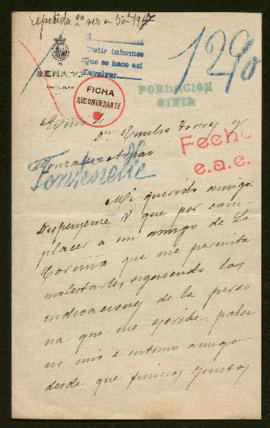 repetida 2ª vez en
Pedir informes
que se hace así
Devolver.
1290
SENADO
FICHA
RECOMENDANTE
POBLACION
CIVIL
Emilio Torres y
González
Fecho
e.a.e.
Fontenelle
Mi querido amigo
Dispénseme V. que por com-
placer a un amigo de La
Coruña que me permita
molestarle, siguiendo las
indicaciones de la perso
na que me escribe,
mio e intimo amigo
desde que fuimos juntos